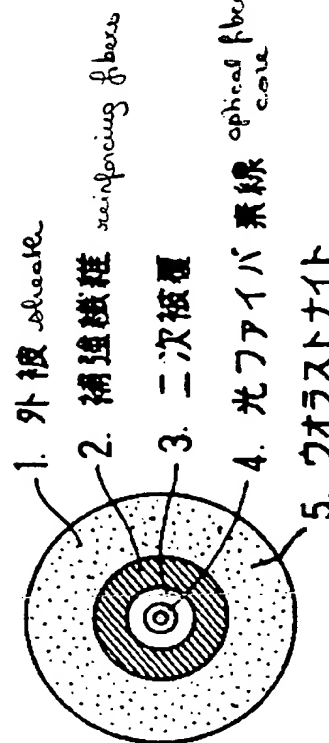 1. 外被 sheath
2. 補強繊維 reinforcing fibers
3. 二次被覆
4. 光ファイバ素線 optical fiber core
5. ウオラストナイト